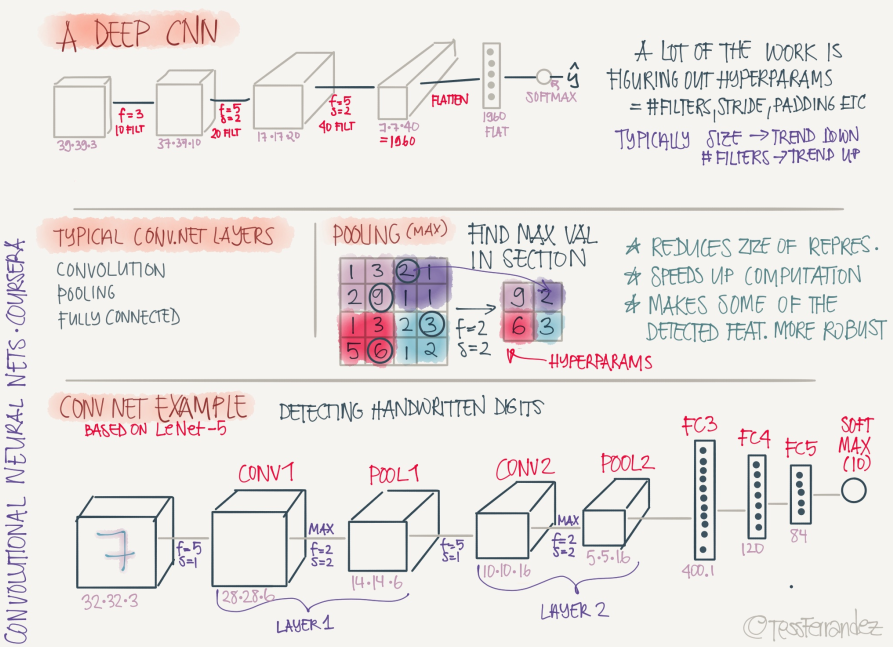 A DEEP CNN
39·39·3
f=3
10 FILT
37·37·10
f=5
s=2
20 FILT
17·17·20
f=5
s=2
40 FILT
7·7·40
=1960
FLATTEN
1960
FLAT
SOFTMAX
ŷ
A LOT OF THE WORK IS
FIGURING OUT HYPERPARAMS
= #FILTERS, STRIDE, PADDING ETC
TYPICALLY SIZE → TREND DOWN
# FILTERS → TREND UP
CONVOLUTIONAL NEURAL NETS · COURSERA
TYPICAL CONV.NET LAYERS
CONVOLUTION
POOLING
FULLY CONNECTED
POOLING (MAX)
FIND MAX VAL
IN SECTION
1 3 2 1
2 9 1 1
1 3 2 3
5 6 1 2
f=2
s=2
9 2
6 3
HYPERPARAMS
☆ REDUCES ZIZE OF REPRES.
☆ SPEEDS UP COMPUTATION
☆ MAKES SOME OF THE
DETECTED FEAT. MORE ROBUST
CONV NET EXAMPLE
DETECTING HANDWRITTEN DIGITS
BASED ON LeNet-5
7
32·32·3
f=5
s=1
CONV1
28·28·6
MAX
f=2
s=2
POOL1
14·14·6
LAYER 1
f=5
s=1
CONV2
10·10·16
MAX
f=2
s=2
POOL2
5·5·16
LAYER 2
FC3
400.1
FC4
120
FC5
84
SOFT
MAX
(10)
©TessFerrandez